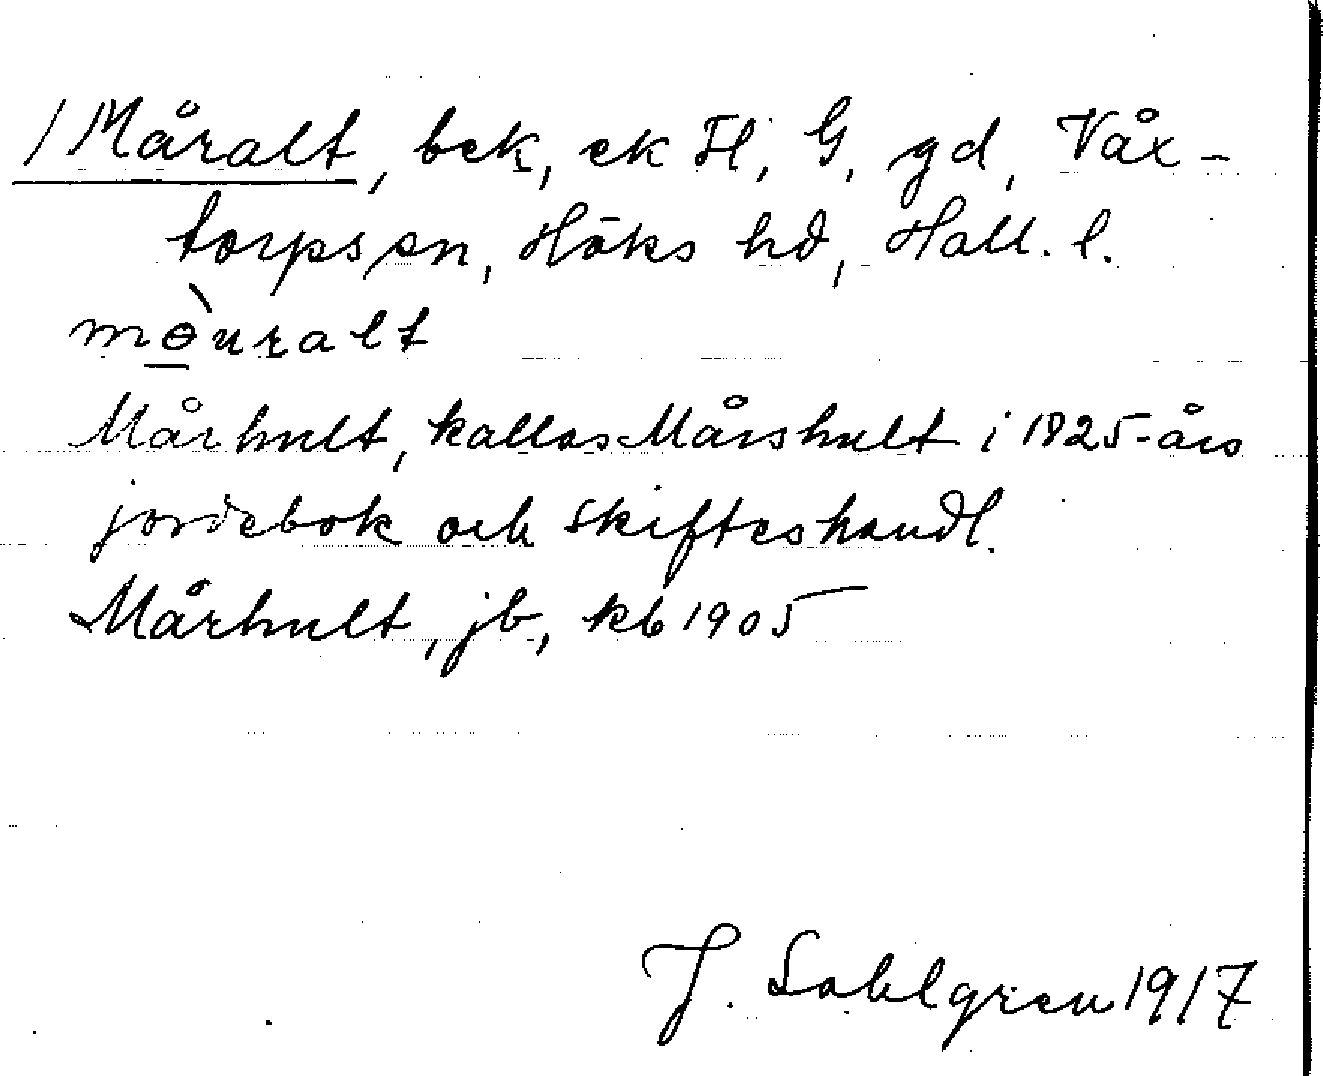 /Måralt, bek, ek Fl, G, gd, Våx-
torps sn, Höks hd, Hall. l.
mɵ̀uralt
Mårhult, kallas Mårshult i 1825-års
jordebok och skifteshandl.
Mårhult, jb, kb 1905
J. Sahlgren 1917